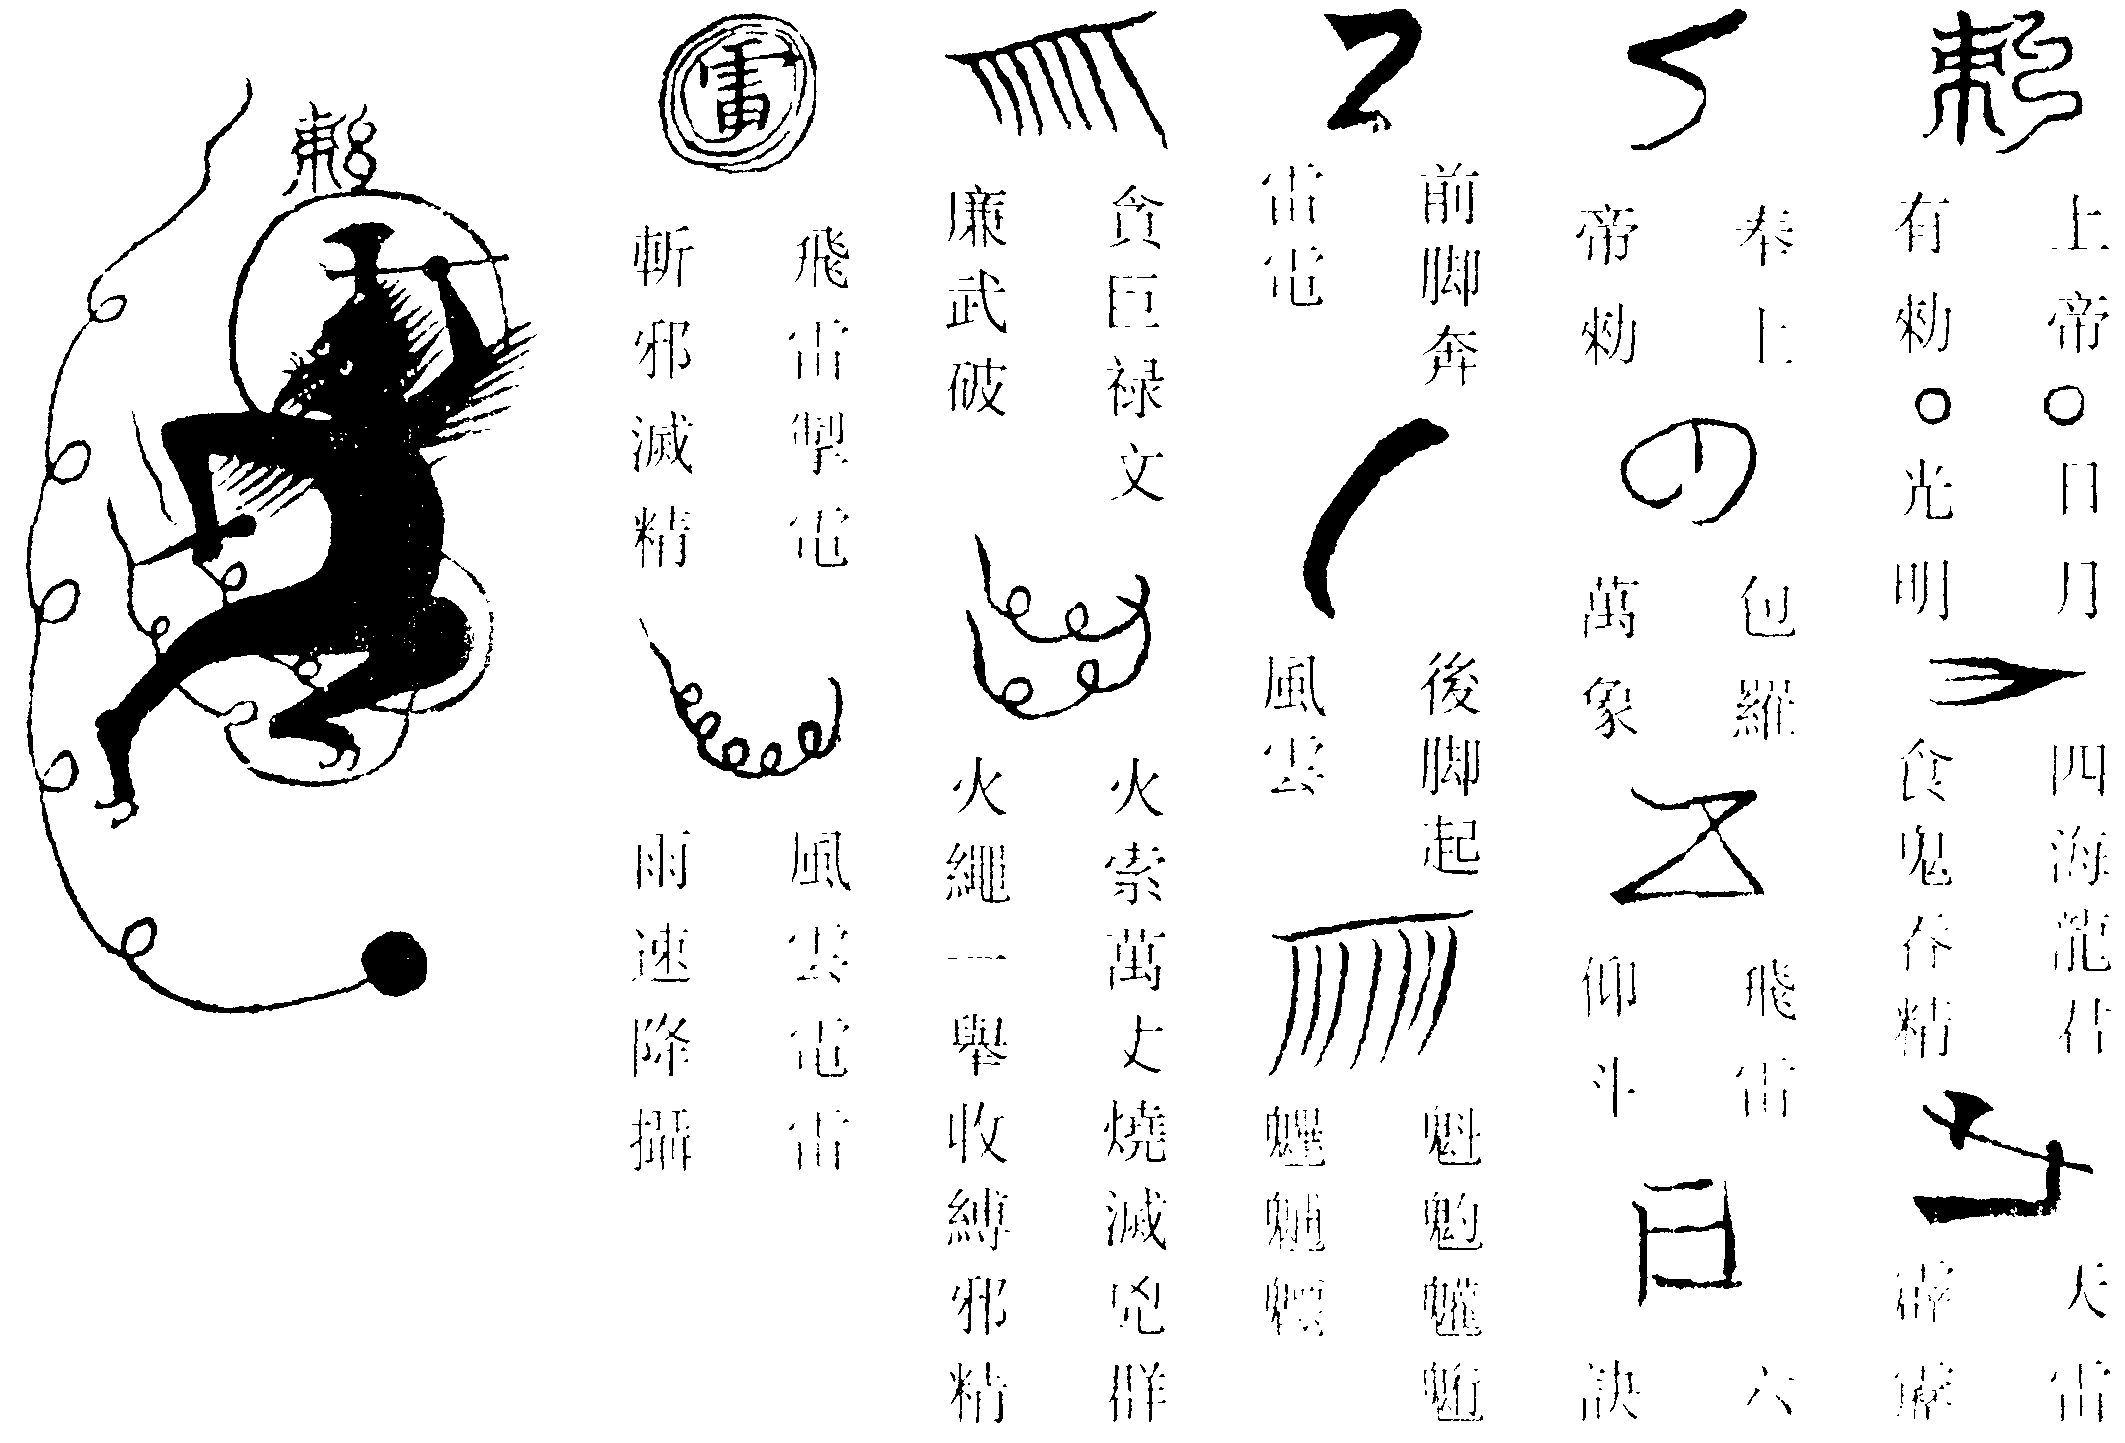 敕
上帝
有勑
日月
光明
四海龍君
食鬼吞精
天雷
霹靂
奉上
帝勑
包羅
萬象
飛雷
仰斗
六
訣
前脚奔
雷電
後脚起
風雲
魁
魓魒
貪巨禄文
廉武破
火索萬丈燒滅兇群
火繩一舉收縛邪精
雷
飛雷掣電
斬邪滅精
風雲電雷
雨速降攝
敕